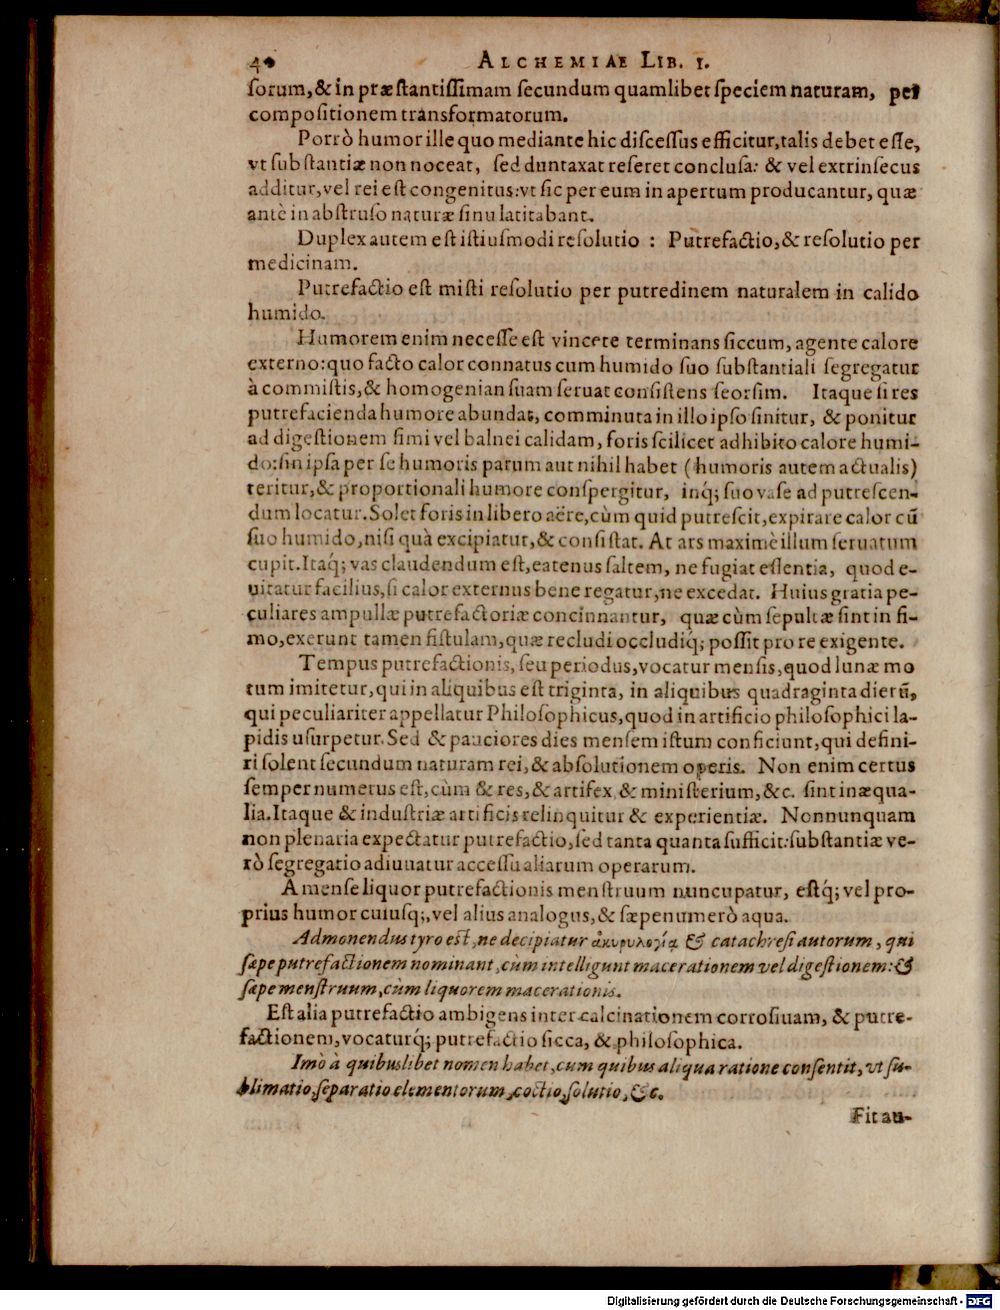 4
ALCHEMIAE LIB. I.
ſorum,& in præſtantiſſimam ſecundum quamlibet ſpeciem naturam, per
compoſitionem transformatorum.
Porrò humor ille quo mediante hic diſceſſus efficitur,talis debet eſſe,
vt ſubſtantiæ non noceat, ſed duntaxat reſeret concluſa: & vel extrinſecus
additur,vel rei eſt congenitus:vt ſic per eum in apertum producantur, quæ
antè in abſtruſo naturæ ſinu latitabant.
Duplex autem eſt iſtiuſmodi reſolutio : Putrefactio,& reſolutio per
medicinam.
Putrefactio eſt miſti reſolutio per putredinem naturalem in calido
humido.
Humorem enim neceſſe eſt vincere terminans ſiccum, agente calore
externo:quo facto calor connatus cum humido ſuo ſubſtantiali ſegregatur
à commiſtis,& homogenian ſuam ſeruat conſiſtens ſeorſim. Itaque ſi res
putrefacienda humore abundat, comminuta in illo ipſo ſinitur, & ponitur
ad digeſtionem fimi vel balnei calidam, foris ſcilicet adhibito calore humi-
do:ſin ipſa per ſe humoris parum aut nihil habet (humoris autem actualis)
teritur,& proportionali humore conſpergitur, inq́; ſuo vaſe ad putreſcen-
dum locatur. Solet foris in libero aëre,cùm quid putreſcit,expirare calor cū
ſuo humido,niſi quà excipiatur,& conſiſtat. At ars maximè illum ſeruatum
cupit.Itaq́; vas claudendum eſt,eatenus ſaltem, ne fugiat eſſentia, quod e-
uitatur facilius,ſi calor externus bene regatur,ne excedat. Huius gratia pe-
culiares ampullæ putrefactoriæ concinnantur, quæ cùm ſepultæ ſint in fi-
mo,exerunt tamen fiſtulam,quæ recludi occludiq́; poſſit pro re exigente.
Tempus putrefactionis, ſeu periodus,vocatur menſis,quod lunæ mo
tum imitetur,qui in aliquibus eſt triginta, in aliquibus quadraginta dierū,
qui peculiariter appellatur Philoſophicus,quod in artificio philoſophici la-
pidis uſurpetur. Sed & pauciores dies menſem iſtum conficiunt,qui defini-
ri ſolent ſecundum naturam rei,& abſolutionem operis. Non enim certus
ſemper numerus eſt,cùm & res,& artifex & miniſterium,&c. ſint inæqua-
lia.Itaque & induſtriæ artificis relinquitur & experientiæ. Nonnunquam
non plenaria expectatur putrefactio,ſed tanta quanta ſufficit:ſubſtantiæ ve-
rò ſegregatio adiuuatur acceſſu aliarum operarum.
A menſe liquor putrefactionis menſtruum nuncupatur, eſtq́; vel pro-
prius humor cuiuſq;,vel alius analogus,& ſæpenumerò aqua.
Admonendus tyro eſt, ne decipiatur ἀκυρολογίᾳ & catachreſi autorum, qui
ſæpe putrefactionem nominant,cùm intelligunt macerationem vel digeſtionem:&
ſæpe menſtruum,cùm liquorem macerationis.
Eſt alia putrefactio ambigens inter calcinationem corroſiuam, & putre-
factionem,vocaturq́; putrefactio ſicca, & philoſophica.
Imò à quibuslibet nomen habet,cum quibus aliqua ratione conſentit, vt ſu-
blimatio,ſeparatio elementorum,coctio,ſolutio,&c.
Fit au-
Digitalisierung gefördert durch die Deutsche Forschungsgemeinschaft - DFG